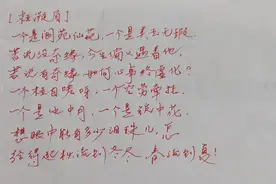 [枉凝眉]
一个是阆苑仙葩，一个是美玉无瑕。
若说没奇缘，今生偏又遇着他，
若说有奇缘，如何心事终虚化？
一个枉自嗟呀，一个空劳牵挂。
一个是水中月，一个是镜中花。
想眼中能有多少泪珠儿，怎
经得起秋流到冬尽，春流到夏！